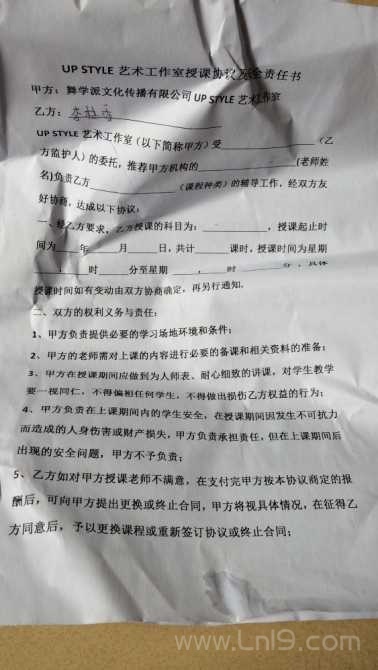 UP STYLE 艺术工作室授课协议及全责任书
甲方：舞学派文化传播有限公司 UP STYLE 艺术工作室
乙方：
UP STYLE 艺术工作室（以下简称甲方）受____________（乙
方监护人）的委托，推荐甲方机构的____________(老师姓
名)负责乙方____________（课程种类）的辅导工作，经双方友
好协商，达成以下协议：
一、经乙方要求，乙方授课的科目为：__________，授课起止时
间为____年____月____日，共计____课时，授课时间为星期
____，____时____分至星期____，____时____分，具体
授课时间如有变动由双方协商确定，再另行通知。
二、双方的权利义务与责任：
1、甲方负责提供必要的学习场地环境和条件；
2、甲方的老师需对上课的内容进行必要的备课和相关资料的准备；
3、甲方在授课期间应做到为人师表、耐心细致的讲课，对学生教学
要一视同仁，不得偏袒任何学生，不得做出损伤乙方权益的行为；
4、甲方负责在上课期间内的学生安全，在授课期间因发生不可抗力
而造成的人身伤害或财产损失，甲方负责承担责任，但在上课期间后
出现的安全问题，甲方不予负责；
5、乙方如对甲方授课老师不满意，在支付完甲方按本协议商定的报
酬后，可向甲方提出更换或终止合同，甲方将视具体情况，在征得乙
方同意后，予以更换课程或重新签订协议或终止合同；
www.Lnl9.com